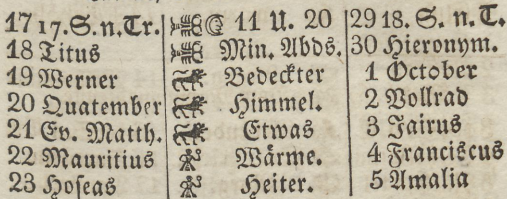 17 17. S. n. Tr. 11 U. 20 29 18. S. n. T.
18 Titus Min. Abds. 30 Hieronym.
19 Werner Bedeckter 1 October
20 Quatember Himmel. 2 Vollrad
21 Ev. Matth. Etwas 3 Jairus
22 Mauritius Wärme. 4 Franciscus
23 Hoseas Heiter. 5 Amalia